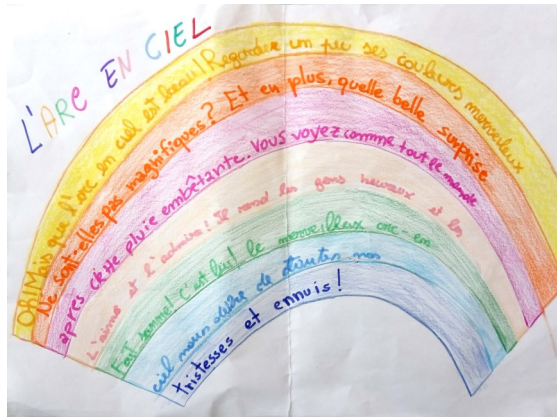 L'ARC EN CIEL
OH! Mais que l'arc en ciel est beau! Regardez un peu ses couleurs merveilleux
Ne sont-elles pas magnifiques? Et en plus, quelle belle surprise
après cette pluie embêtante. Vous voyez comme tout le monde
l'aime et l'admire! Il rend les gens heureux et les
fait! C'est lui! le merveilleux arc-en
ciel nous délivre de toutes nos
tristesses et ennuis!